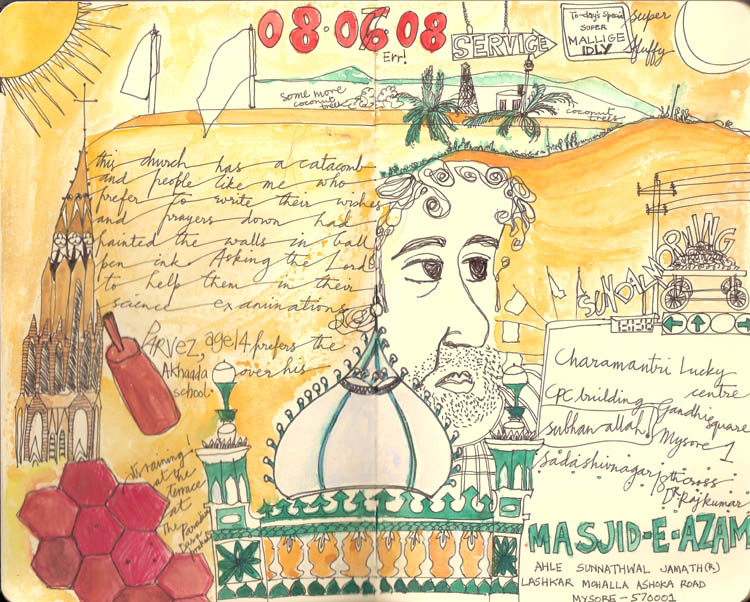 08·06·08
Err!
SERVICE
To-day's Special
SUPER
MALLIGE
IDLY
super
fluffy
some more
coconut
trees
coconut
trees
this church has a catacomb
and people like me who
prefer to write their wishes
and prayers down had
painted the walls in ball
pen ink. Asking the Lord
to help them in their
science examinations
PARVEZ, age 14 prefers the
Akhaada over his
school
SUNDAY MORNING
Charamantri Lucky
centre
CPC building
Gandhi
square
subhan allah!
Mysore 1
Sadashivnagar
cross
Dr. Rajkumar
It's raining!
at the
terrace
at
The
MASJID-E-AZAM
AHLE SUNNATHWAL JAMATH(R)
LASHKAR MOHALLA ASHOKA ROAD
MYSORE - 570001